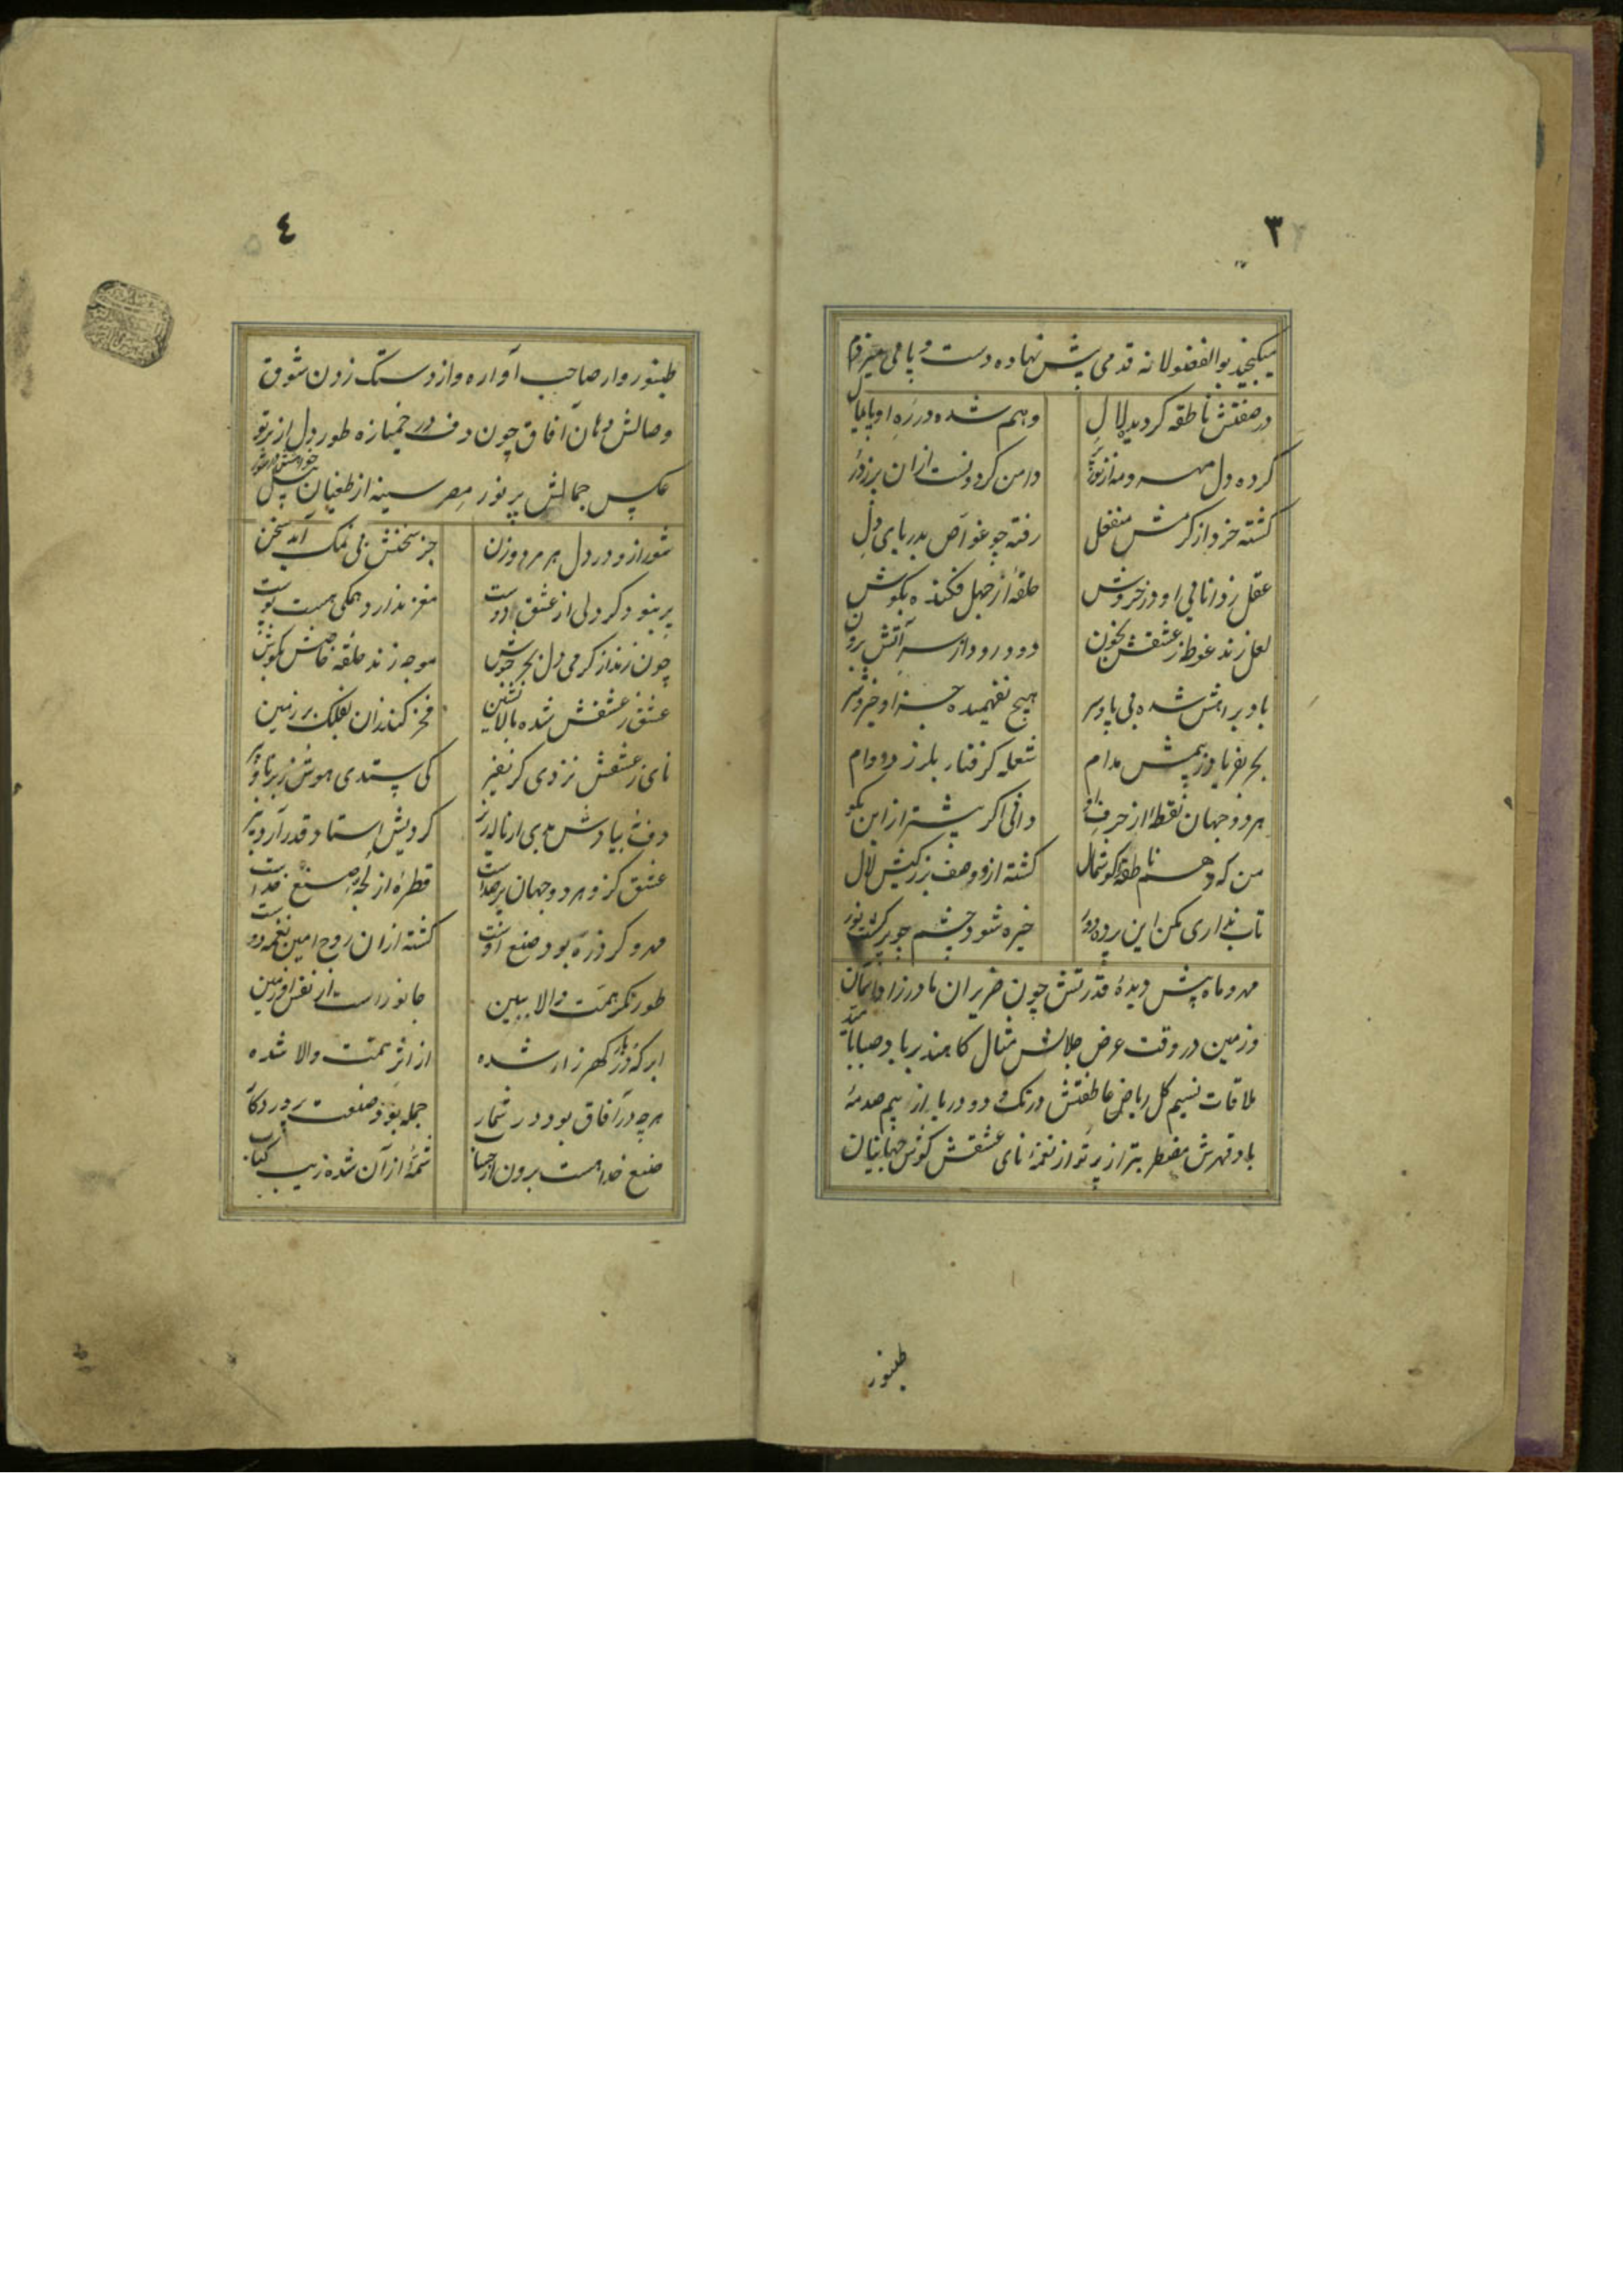 ٣
میکنجید بوالفضولانه قدمی پیش نهاده دست و پا می میزد
در صفتش ناطقه کردیده لال وهم شده در ره او پایمال
کرده دل مهر و مه از نور دامن کردونست ازان پر ز در
کشته خرد از کرمش منفعل رفته چو غواص بدریای دل
عقل ز دانائی او در خروش حلقهٔ از جهل فکنده بکوش
لعل زند غوطه ز عشقش بخون دود رود از سر آتش برون
باد براهش شده بی پا و سر هیچ نفهمیده جز او خیر و شر
بحر بفریاد ز بیمش مدام شعله کرفتار بلرز دوام
هر دو جهان نقطهٔ از حرف او دافی اکر بیشتر از این بکو
من که دهم ناطقه را کوشمال کشته ازو وصف بزرکیش لال
تاب نداری مکن این پرده دور خیره شود چشم چو پر کشت نور
مهر و ماه پیش دیدهٔ قدرتش چون ضریران مادرزاد آسمان
و زمین در وقت عرض جلالش مثال کاهند بر باد صبا با
ملاقات نسیم کل ریاض عاطفتش در تک و دو دریا از بیم صدمهٔ
باد قهرش مضطرب تر از پرتو از نغمهٔ نای عشقش کوش جهانیان
طنبور
٤
طنبور وار صاحب آوازه و از دستک زدن شوق
وصالش دهان آفاق چون دف در خمیازه طور دل از پرتو
عکس جمالش پر نور مصر سینه از طغیان نیل
شور ازو در دل هر مرد و زن جز سخنش بی نمک آمد سخن
پر نبود کر دلی از عشق دوست مغز ندارد همکی هست پوست
چون زند از کرمی دل بحر جوش موجه زند حلقه خاصش بکوش
عشق ز عشقش شده بالانشین فخر کند زان بفلک بر زمین
نای ز عشقش نزدی کر نفیر کی بستدی هوش ز برنا و پیر
دف بیادش بدی ار ناله ریز کردیش استاد قدر آرد بیز
عشق کزو هر دو جهان پر صداست قطرهٔ از لجهٔ صنع خداست
مهر و کر ذره بود صنع اوست کشته ازان روح امین نغمه دوست
طور نکر همت والا ببین جانور است از نفس آفرین
ابر که در بار کهر زار شده از اثر همت والا شده
هر چه در آفاق بود در شمار جمله بود صنعت پروردکار
صنع خدا هست برون از حساب شمهٔ از آن شده زیب کتاب